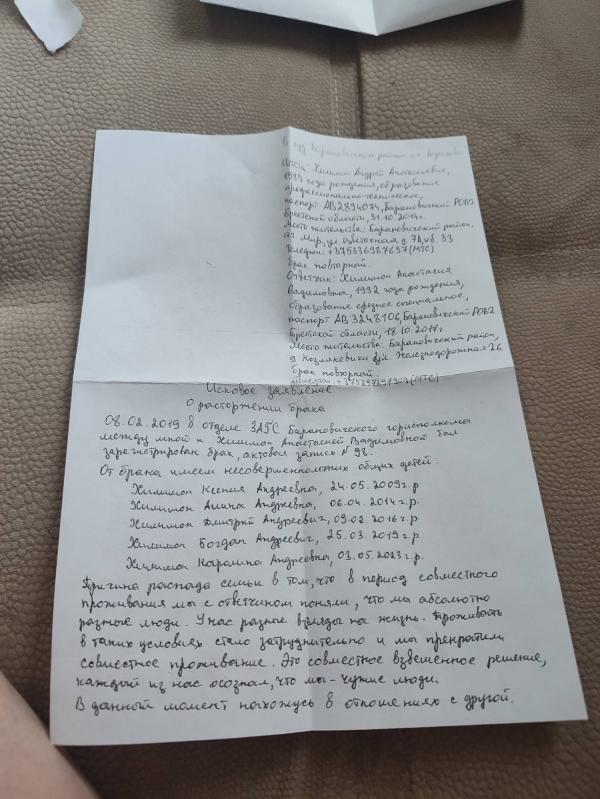 В суд Барановичского района и г. Барановичи
Истец: Химион Андрей Анатольевич,
1989 года рождения, образование
профессионально-техническое,
паспорт АВ2894074, Барановичский РОВД
Брестской области, 31.10.2014г.
Место жительства: Барановичский район,
аг. Мир, ул. Цветочная д. 7А, кв. 33
Телефон: +375336987697 (МТС)
брак повторной.
Ответчик: Химион Анастасия
Вадимовна, 1992 года рождения,
образование среднее специальное,
паспорт АВ 3248106, Барановичский РОВД
Брестской области, 18.10.2017г.
Место жительства: Барановичский район,
д Железнодорожная 26
брак повторной.
(МТС)
Исковое заявление
О расторжении брака
08.02.2019 в отделе ЗАГС Барановичского горисполкома
между мной и Химион Анастасией Вадимовной был
зарегистрирован брак, актовая запись № 98.
От брака имеем несовершеннолетних общих детей:
Химион Ксения Андреевна, 24.05.2009г.р
Химион Алина Андреевна, 06.04.2014г.р.
Химион Дмитрий Андреевич, 09.02.2016г.р.
Химион Богдан Андреевич, 25.03.2019г.р.
Химион Каралина Андреевна, 03.05.2023г.р.
Причина распада семьи в том, что в период совместного
проживания мы с ответчиком поняли, что мы абсолютно
разные люди. У нас разные взгляды на жизнь. Проживать
в таких условиях стало затруднительно и мы прекратили
совместное проживание. Это совместное взвешенное решение,
каждый из нас осознал, что мы - чужие люди.
В данный момент нахожусь в отношениях с другой.